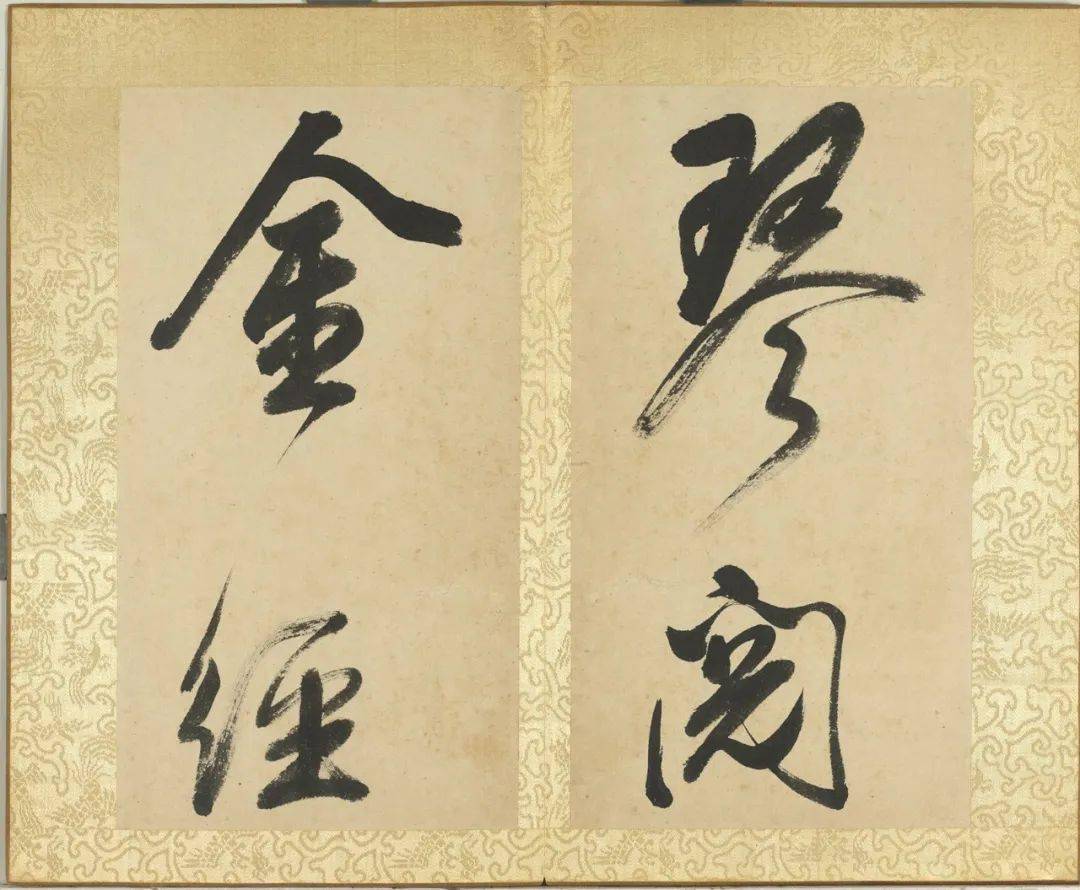 琴閱
金經